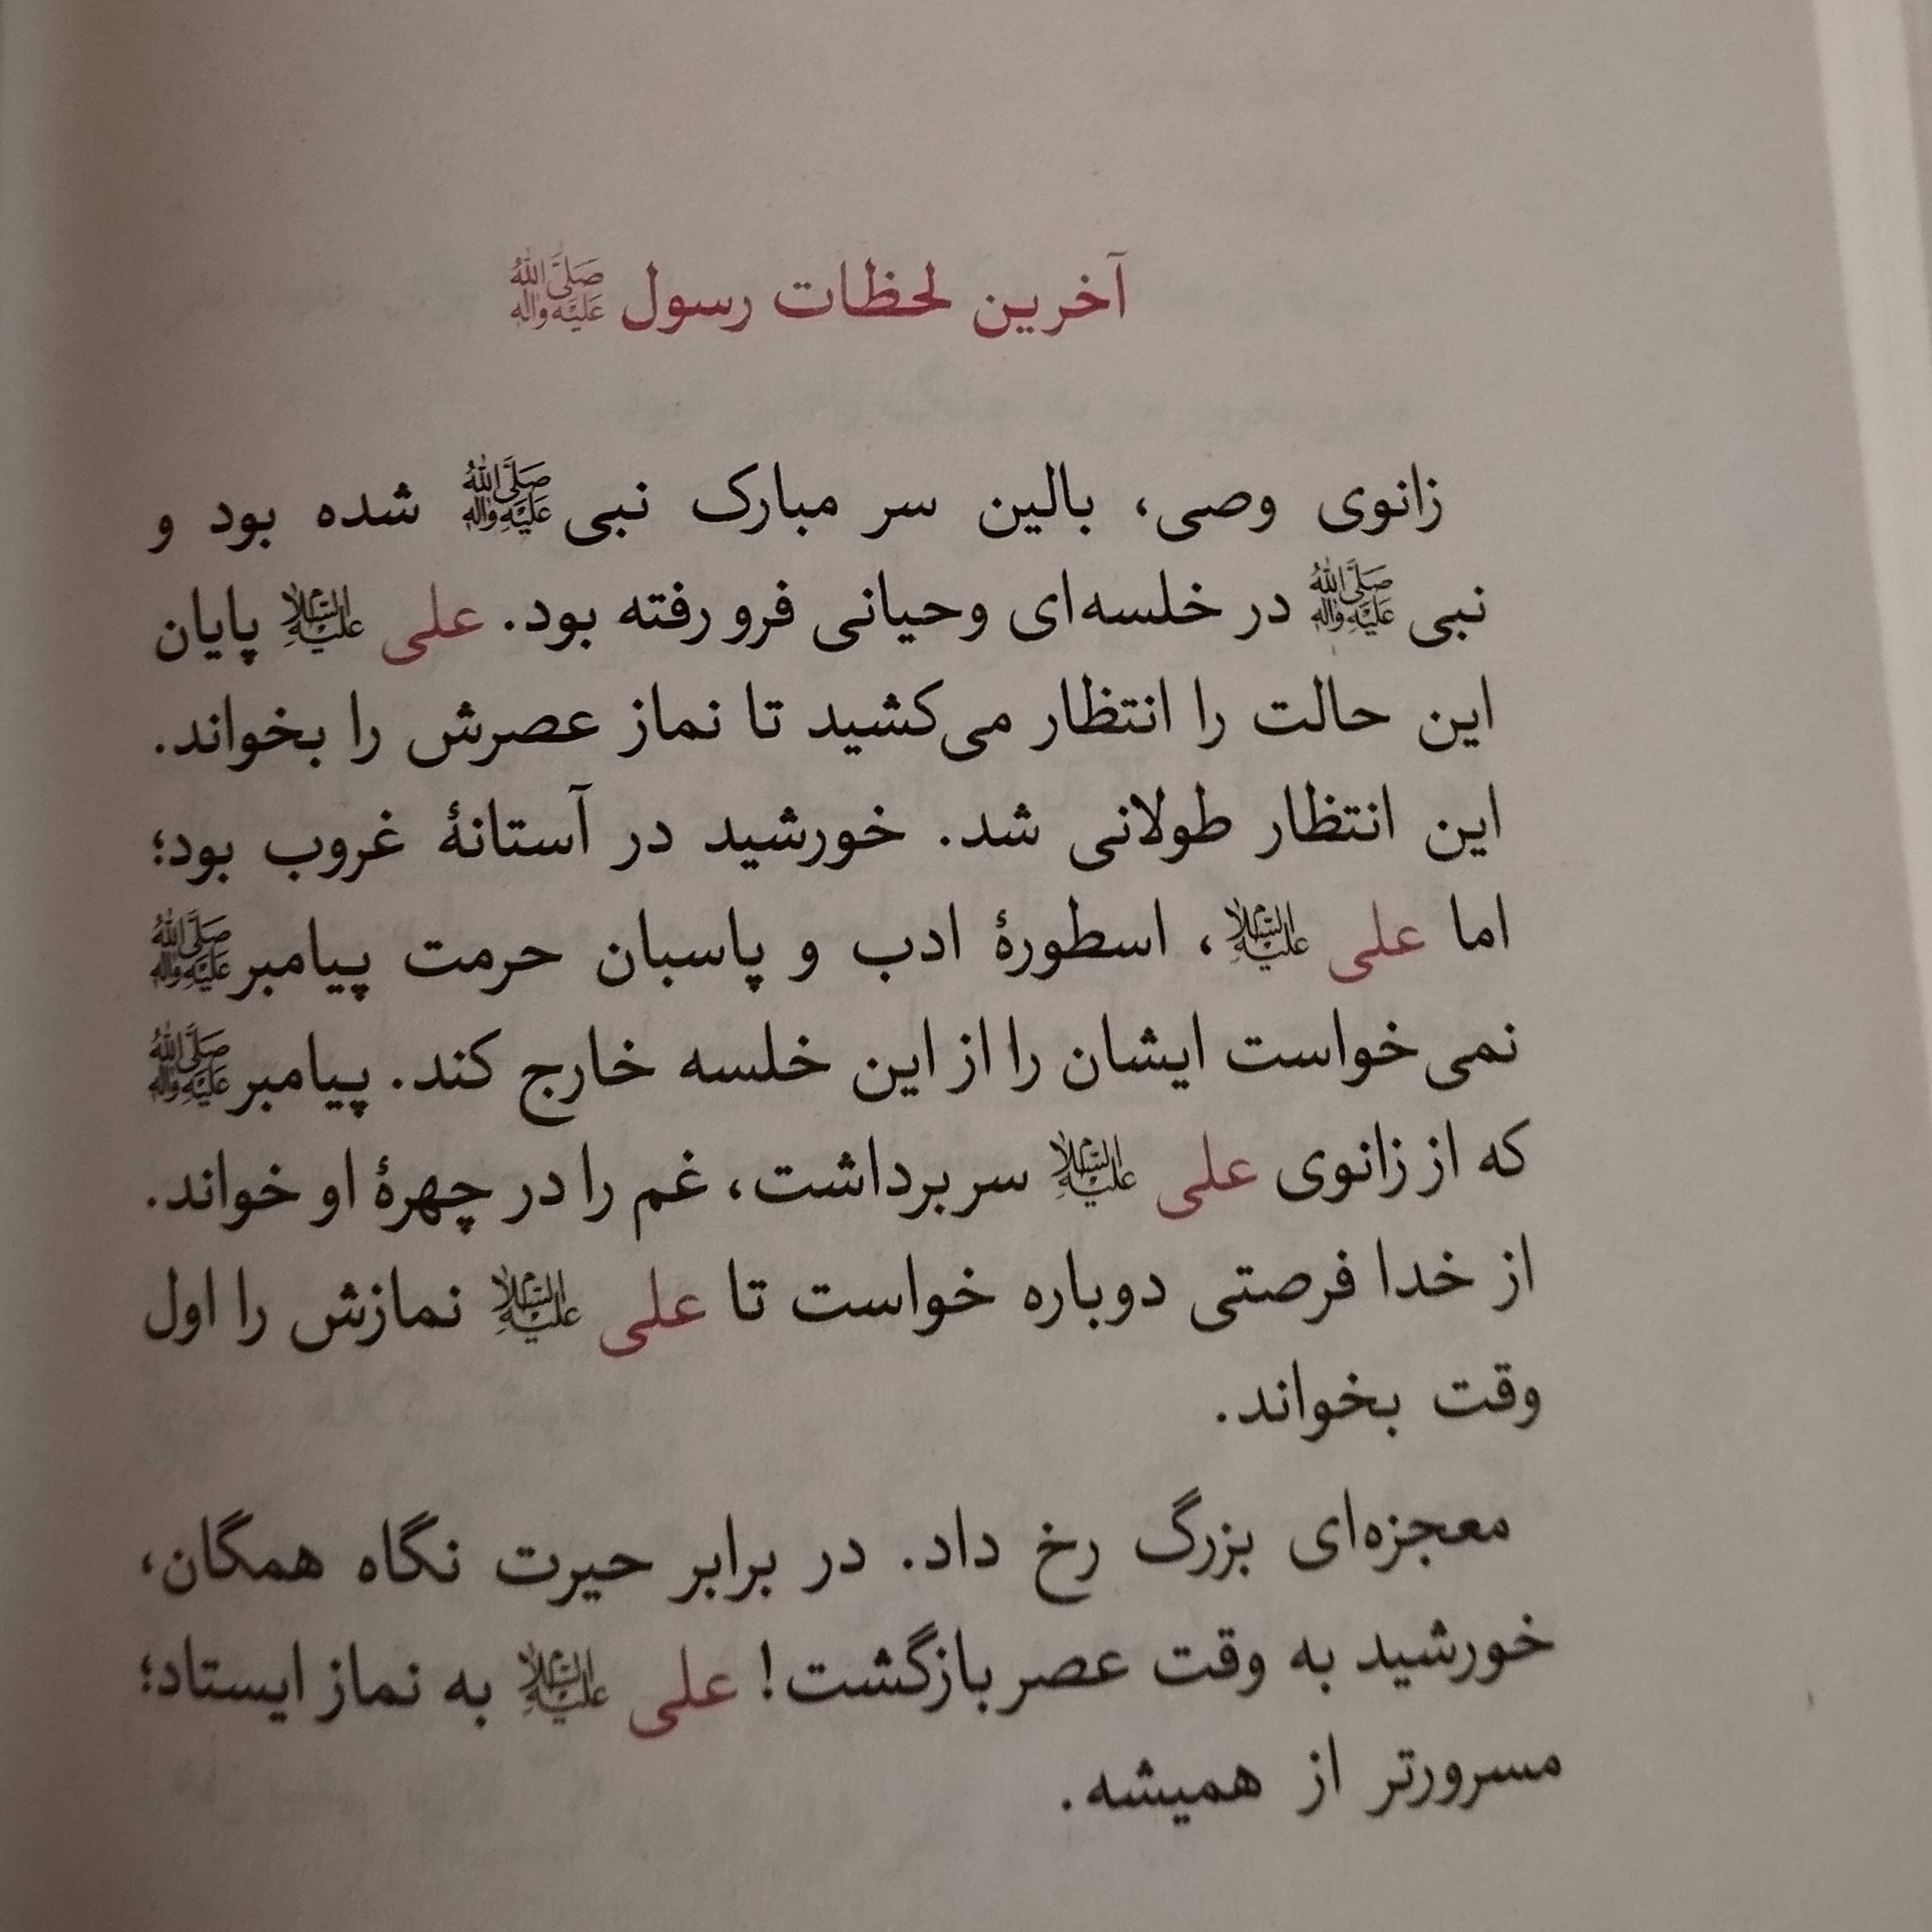 آخرین لحظات رسول ﷺ
زانوی وصی، بالین سر مبارک نبی ﷺ شده بود و
نبی ﷺ در خلسه‌ای وحیانی فرو رفته بود. علی علیه‌السلام پایان
این حالت را انتظار می‌کشید تا نماز عصرش را بخواند.
این انتظار طولانی شد. خورشید در آستانهٔ غروب بود؛
اما علی علیه‌السلام، اسطورهٔ ادب و پاسبان حرمت پیامبر ﷺ
نمی‌خواست ایشان را از این خلسه خارج کند. پیامبر ﷺ
که از زانوی علی علیه‌السلام سر برداشت، غم را در چهرهٔ او خواند.
از خدا فرصتی دوباره خواست تا علی علیه‌السلام نمازش را اول
وقت بخواند.
معجزه‌ای بزرگ رخ داد. در برابر حیرت نگاه همگان،
خورشید به وقت عصر بازگشت! علی علیه‌السلام به نماز ایستاد؛
مسرورتر از همیشه.